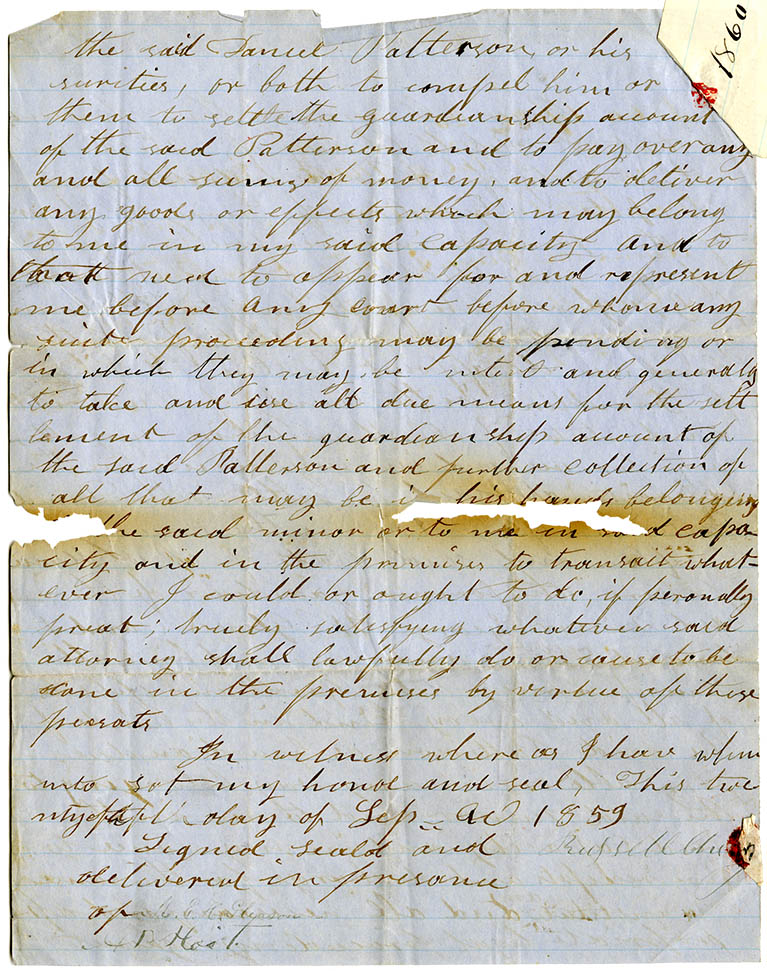 1860
the said Daniel Patterson, or his
surities, or both to compel him or
them to settle the guardianship account
of the said Patterson and to pay over any
and all sums of money, and to deliver
any goods or effects which may belong
to me in my said capacity and to
that need to appear for and represent
me before any court before whome any
suite proceeding may be pending or
in which they may be and generally
to take and use all due means for the sett
lement of the guardianship account of
the said Patterson and further collection of
all that may be in his hands belonging
the said minor or to me in said capa-
city and in the premises to transait what-
ever I could or ought to do, if peronally
preat; truely satisfying whatever said
attorney shall lawfully do or cause to be
done in the premises by virtue of these
persats
In witness where as I have when
unto set my hand and seal, This twe
day of Sep AD 1859
Signed seald and Russell
delivered in presance
of
Hoit